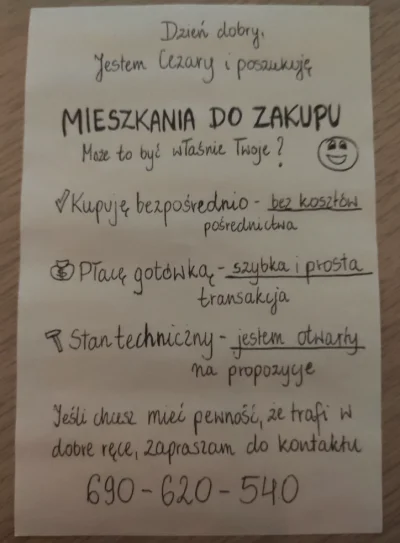 Dzień dobry,
Jestem Cezary i poszukuję
MIESZKANIA DO ZAKUPU
Może to być właśnie Twoje?
Kupuję bezpośrednio - bez kosztów
pośrednictwa
Płacę gotówką - szybka i prosta
transakcja
Stan techniczny - jestem otwarty
na propozycje
Jeśli chcesz mieć pewność, że trafi w
dobre ręce, zapraszam do kontaktu
690-620-540